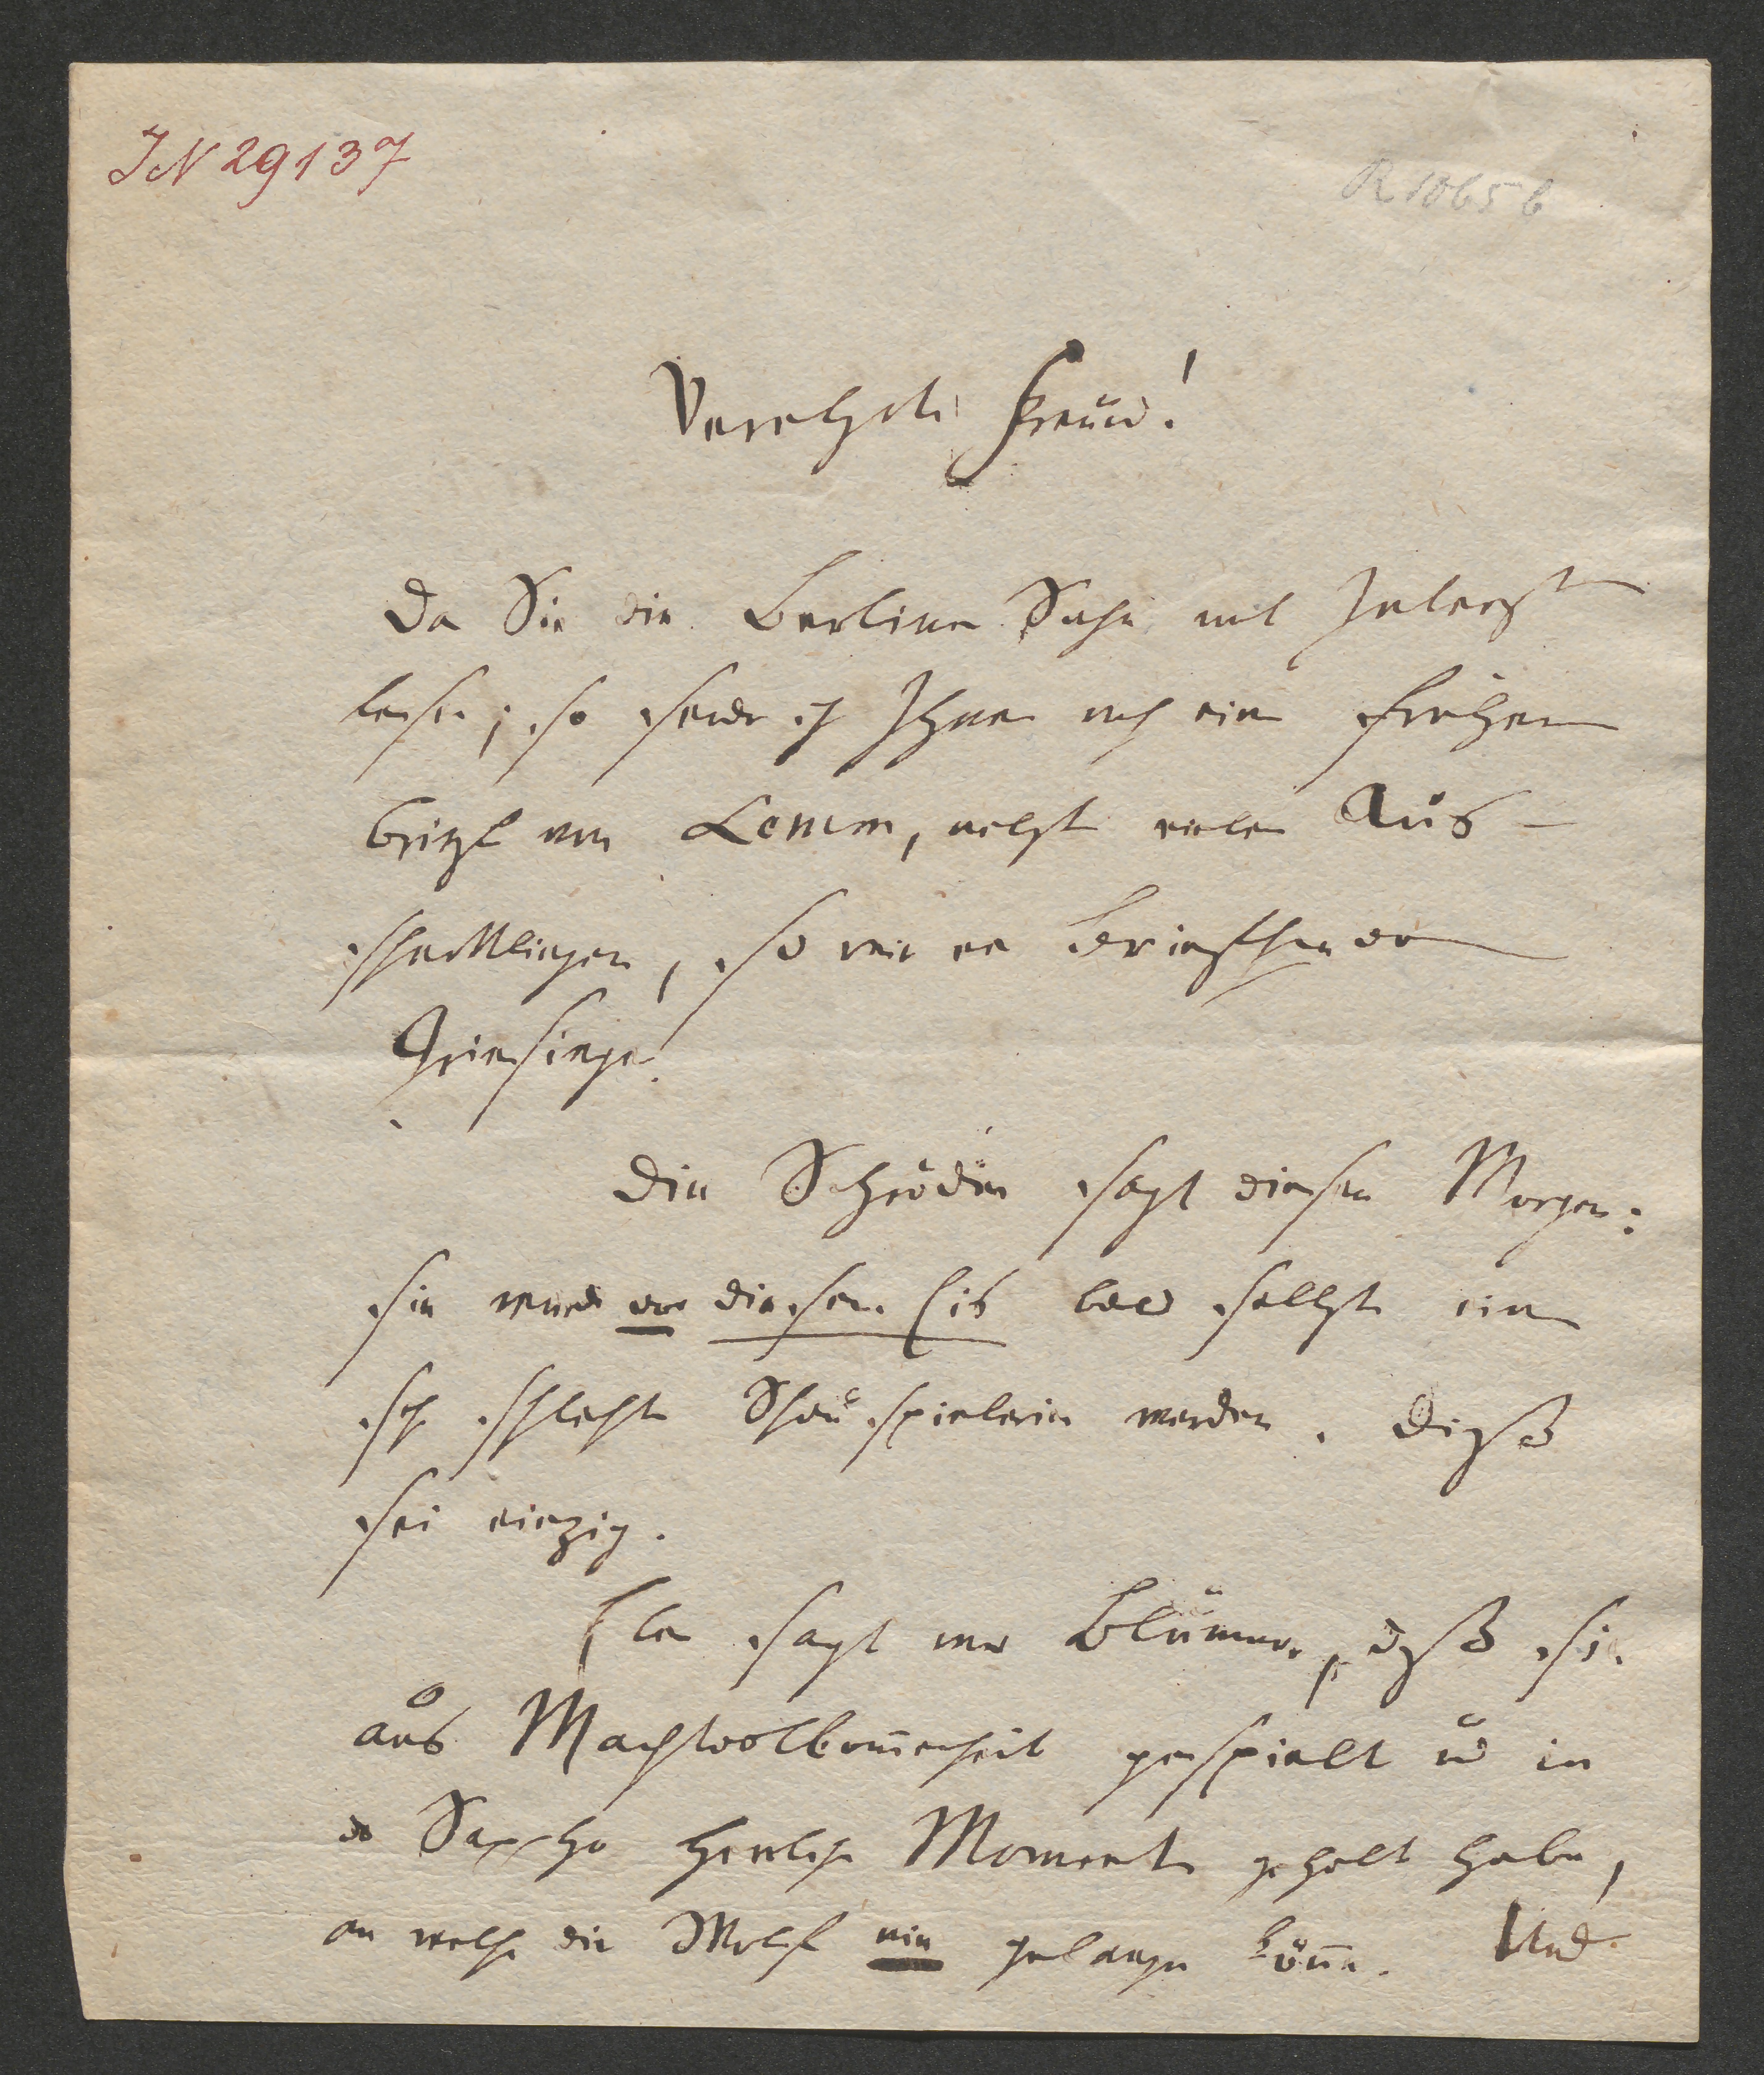 IN 29137
R 1065 b
Verehrter Freund!
Da Sie die Berliner Sache mit Interesse
lesen, so sende ich Ihnen noch einen früheren
Brief von Lemm, nebst vielen Aus-
schnittlingen, so wie ein Briefchen von
Griesinger.
Die Schröder sagt diesen Morgen:
sie würde vor diesem Eis bald selbst eine
sch schlechte Schauspielerin werden. Dieß
sei einzig.
Eben sagt mir Blümner, daß sie
aus Machtvollkommenheit gespielt und in
der Sappho herrliche Momente gehabt habe,
an welche die Wolf nie gelangen könne. Und